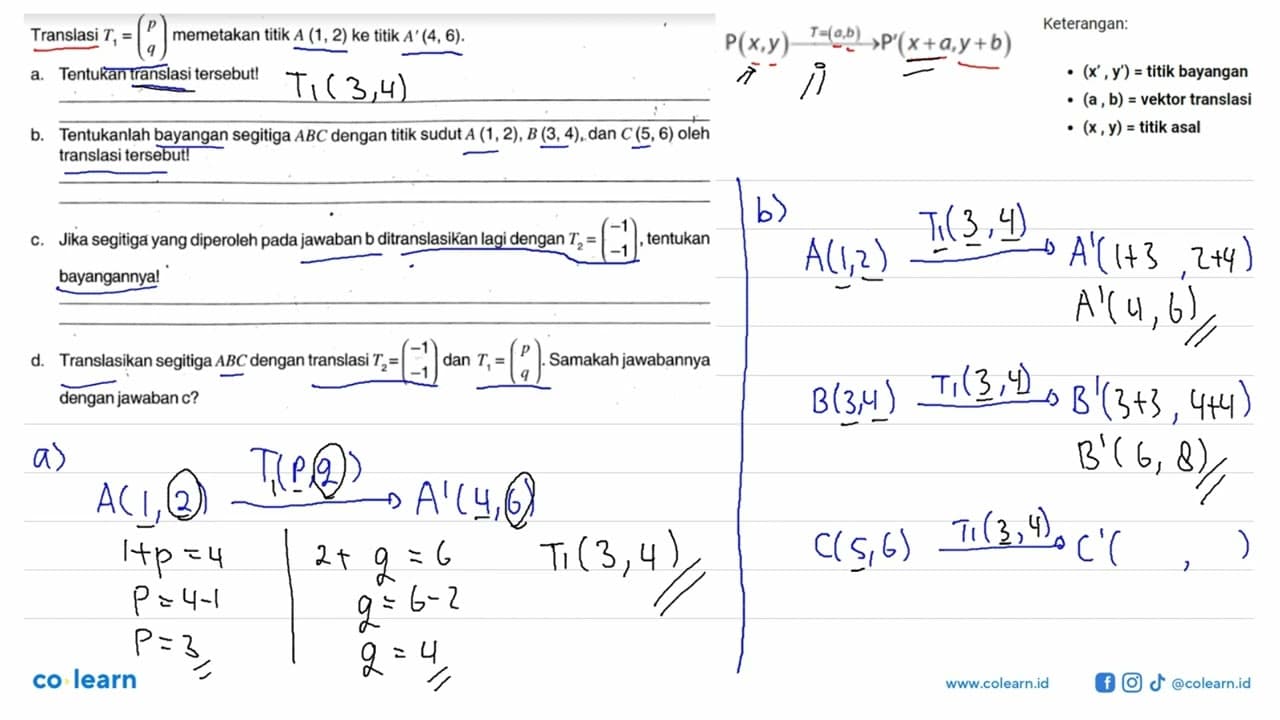 Translasi T₁ = (p q) memetakan titik A (1, 2) ke titik A' (4, 6).
a. Tentukan translasi tersebut!
T₁(3,4)
b. Tentukanlah bayangan segitiga ABC dengan titik sudut A (1, 2), B (3, 4), dan C (5, 6) oleh
translasi tersebut!
c. Jika segitiga yang diperoleh pada jawaban b ditranslasikan lagi dengan T₂ = (−1 −1), tentukan
bayangannya!
d. Translasikan segitiga ABC dengan translasi T₂ = (−1 −1) dan T₁ = (p q). Samakah jawabannya
dengan jawaban c?
P(x,y) T=(a,b) → P'(x+a,y+b)
Keterangan:
• (x' , y') = titik bayangan
• (a , b) = vektor translasi
• (x , y) = titik asal
a)
A(1,2) T₁(p,q) → A'(4,6)
1+p = 4
p = 4-1
p = 3
2+ q = 6
q = 6-2
q = 4
T₁(3,4)
b)
A(1,2) T₁(3,4) → A'(1+3 , 2+4)
A'(4,6)
B(3,4) T₁(3,4) → B'(3+3 , 4+4)
B'(6, 8)
C(5,6) T₁(3,4) → C'( , )
co learn
www.colearn.id
@colearn.id